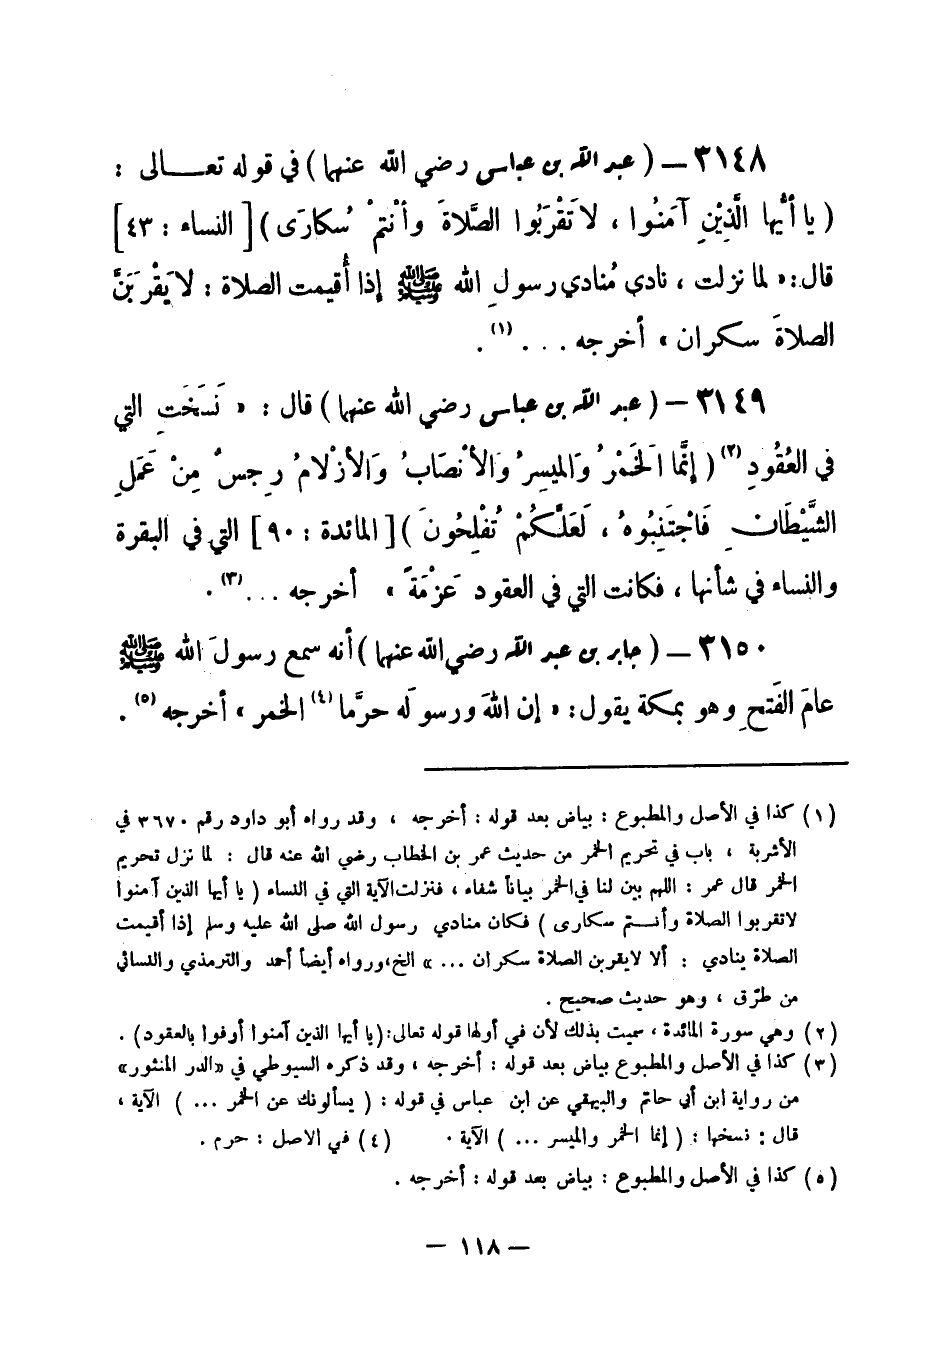 ٣١٤٨ – ( عبد الله بن عباس رضي الله عنهما ) في قوله تعـــالى :
( يا أَيُّها الَّذِيْنِ آمَنُوا ، لا تَقْرَبُوا الصَّلاةَ وأنْتمْ سُكارَى ) [ النساء : ٤٣ ]
قال : « لما نزلت ، نادى مُنادي رسولِ الله ﷺ إذا أُقيمت الصلاة : لا يَقْرَبَنَّ
الصلاةَ سكران » أخرجه . . . (١) .
٣١٤٩ – ( عبد الله بن عباس رضي الله عنهما ) قال : « نَسَخَتِ التي
في العُقُودِ (٢) ( إنَّما الَخمْرُ وَالميسِرُ وَالأَنْصَابُ وَالأزْلامُ رِجسٌ مِنْ عَمَلِ
الشَّيْطَانِ فَاجْتَنِبُوهُ ، لَعَلَّكُمْ تُفْلِحُونَ ) [ المائدة : ٩٠ ] التي في البقرة
والنساء في شأنها ، فكانت التي في العقود عَزْمَةً » أخرجه . . . (٣) .
٣١٥٠ – ( جابر بن عبد الله رضي الله عنهما ) أنه سمع رسولَ الله ﷺ
عامَ الفَتحِ وهو بمكة يقول : « إن اللهَ ورسولَه حرَّما (٤) الخمر » أخرجه (٥) .
(١) كذا في الأصل والمطبوع : بياض بعد قوله : أخرجه ، وقد رواه أبو داود رقم ٣٦٧٠ في
الأشربة ، باب في تحريم الخمر من حديث عمر بن الخطاب رضي الله عنه قال : لما نزل تحريم
الخمر قال عمر : اللهم بين لنا في الخمر بياناً شفاء ، فنزلت الآية التي في النساء ( يا أيها الذين آمنوا
لاتقربوا الصلاة وأنـــتم سكارى ) فكان منادي رسول الله صلى الله عليه وسلم إذا أقيمت
الصلاة ينادي : ألا لايقربن الصلاة سكران ... » الخ ، ورواه أيضاً أحمد والترمذي والنسائي
من طرق ، وهو حديث صحيح .
(٢) وهي سورة المائدة ، سميت بذلك لأن في أولها قوله تعالى : ( يا أيها الذين آمنوا أوفوا بالعقود ) .
(٣) كذا في الأصل والمطبوع بياض بعد قوله : أخرجه ، وقد ذكره السيوطي في «الدر المنثور»
من رواية ابن أبي حاتم والبيهقي عن ابن عباس في قوله : ( يسألونك عن الخمر ... ) الآية ،
قال : نسخها : ( إنما الخمر والميسر ... ) الآية . (٤) في الاصل : حرم .
(٥) كذا في الأصل والمطبوع : بياض بعد قوله : أخرجه .
– ١١٨ –